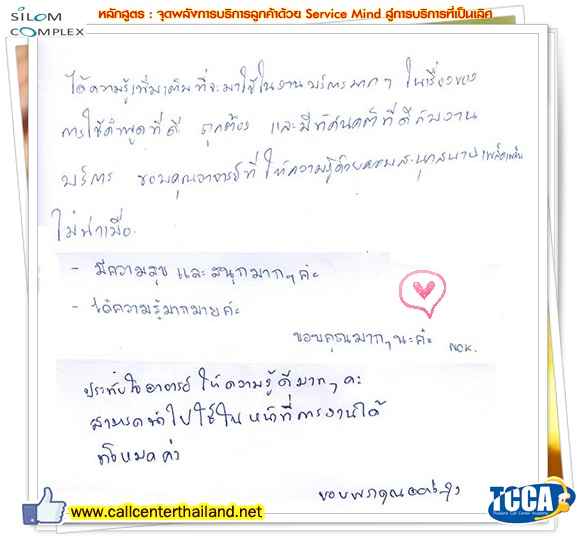 SILOM
COMPLEX
หลักสูตร : จุดพลังการบริการลูกค้าด้วย Service Mind สู่การบริการที่เป็นเลิศ
ได้ความรู้เพิ่มเติมที่จะมาใช้ในงานบริการมากๆ ในเรื่องของ
การใช้คำพูดที่ดี ถูกต้อง และมีทัศนคติที่ดีกับงาน
บริการ ขอบคุณอาจารย์ที่ให้ความรู้ด้วยความสนุกสนาน เพลิดเพลิน
ไม่น่าเบื่อ.
- มีความสุข และ สนุกมากๆค่ะ
- ได้ความรู้มากมายค่ะ
ขอบคุณมากๆนะค่ะ NOK.
ประทับใจอาจารย์ ให้ความรู้ดีมากๆ คะ
สามารถนำไปใช้ใน หน้าที่การงานได้
ทั้งหมดค่ะ
ขอบพระคุณ
www.callcenterthailand.net
TCCA
Thailand Call Center Academy